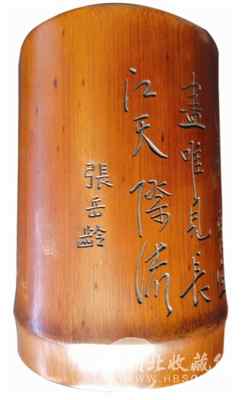 盡唯見長
江天際流
張岳齡
北收藏
WWW.HBSC